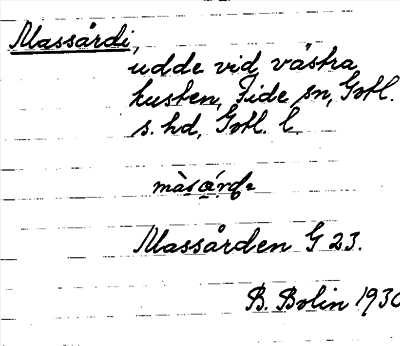 Massårdi,
udde vid västra
kusten, Fide sn, Gotl.
s. hd, Gotl. l.
Massården G 23.
B. Bolin 1930